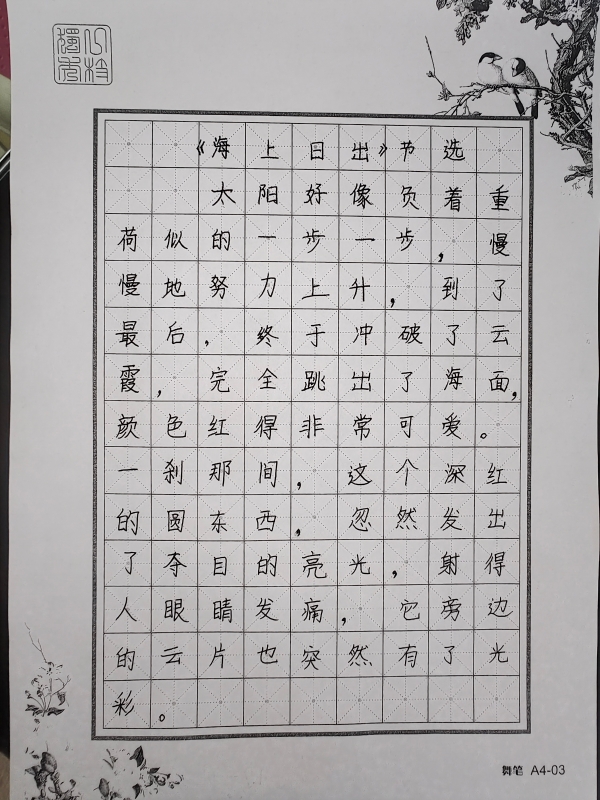 《海上日出》节选
太阳好像负着重
荷似的一步一步，慢
慢地努力上升，到了
最后，终于冲破了云
霞，完全跳出了海面，
颜色红得非常可爱。
一刹那间，这个深红
的圆东西，忽然发出
了夺目的亮光，射得
人眼睛发痛，它旁边
的云片也突然有了光
彩。
舞笔 A4-03